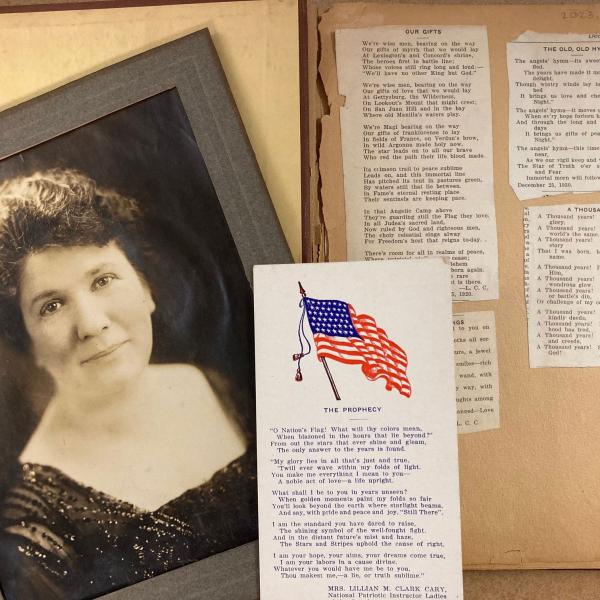 2023.
OUR GIFTS
We're wise men, bearing on the way
Our gifts of myrrh that we would lay
At Lexington's and Concord's shrine,
The heroes first in battle line;
Whose voices still ring long and loud:—
"We'll have no other King but God."
We're wise men, bearing on the way
Our gifts of love that we would lay
At Gettysburg, the Wilderness,
On Lookout's Mount that might crest;
On San Juan Hill and in the bay
Where old Manilla's waters play.
We're Magi bearing on the way
Our gifts of frankincense to lay
In fields of France, on Verdun's brow,
In wild Argonne made holy now.
The star leads on to all our brave
Who red the path their life blood made.
Its crimson trail to peace sublime
Leads on, and this immortal line
Has pitched its tent in pastures green,
By waters still that lie between.
In Fame's eternal resting place
Their sentinels are keeping pace.
In that Angelic Camp above
They're guarding still the Flag they love.
In all Judea's sacred land,
Now ruled by God and righteous men,
The choir celestial sings alway
For Freedom's host that reigns to-day.
There's room for all in realms of peace,
cease;
lehem
born again.
rare
it is there.
—L. C. C.
5, 1920.
NGS
to you on
ocks all sor-
urs, a jewel
smiles—rich
wand, with
way, with
ughts among
anced—Love
C. C.
THE OLD, OLD HY
The angels' hymn—its swee
fled.
The years have made it mo
delight.
Though wintry winds lay l
bed
It brings us love and chee
Night."
The angels' hymn—it moves u
When es'ry hope forlorn h
And through the long and
days
It brings us gifts of pea
Night."
The angels' hymn—this time
near,
As we our vigil keep and w
The Star of Truth o'er s
and Fear
Immortal men will follow
December 25, 1920.
A THOUSA
A Thousand years!
glory,
A Thousand years!
world's the same.
A Thousand years!
story
That I was born, b
name.
A Thousand years! I
Him,
A Thousand years!
wondrous glow.
A Thousand years!
or battle's din,
Or challenge of my c
A Thousand years!
kindly deeds,
A Thousand years!
blood has trod,
A Thousand years!
and creeds,
A Thousand years! I
God!
THE PROPHECY
"O Nation's Flag! What will thy colors mean,
When blazoned in the hours that lie beyond?"
From out the stars that ever shine and gleam,
The only answer to the years is found.
"My glory lies in all that's just and true,
'Twill ever wave within my folds of light.
You make me everything I mean to you—
A noble act of love—a life upright.
What shall I be to you in years unseen?
When golden moments paint my folds so fair
You'll look beyond the earth where starlight beams,
And say, with pride and peace and joy, "Still There".
I am the standard you have dared to raise,
The shining symbol of the well-fought fight.
And in the distant future's mist and haze,
The Stars and Stripes uphold the cause of right.
I am your hope, your aims, your dreams come true,
I am your labors in a cause divine.
Whatever you would have me be to you,
Thou makest me,—a lie, or truth sublime."
MRS. LILLIAN M. CLARK CARY,
National Patriotic Instructor Ladies